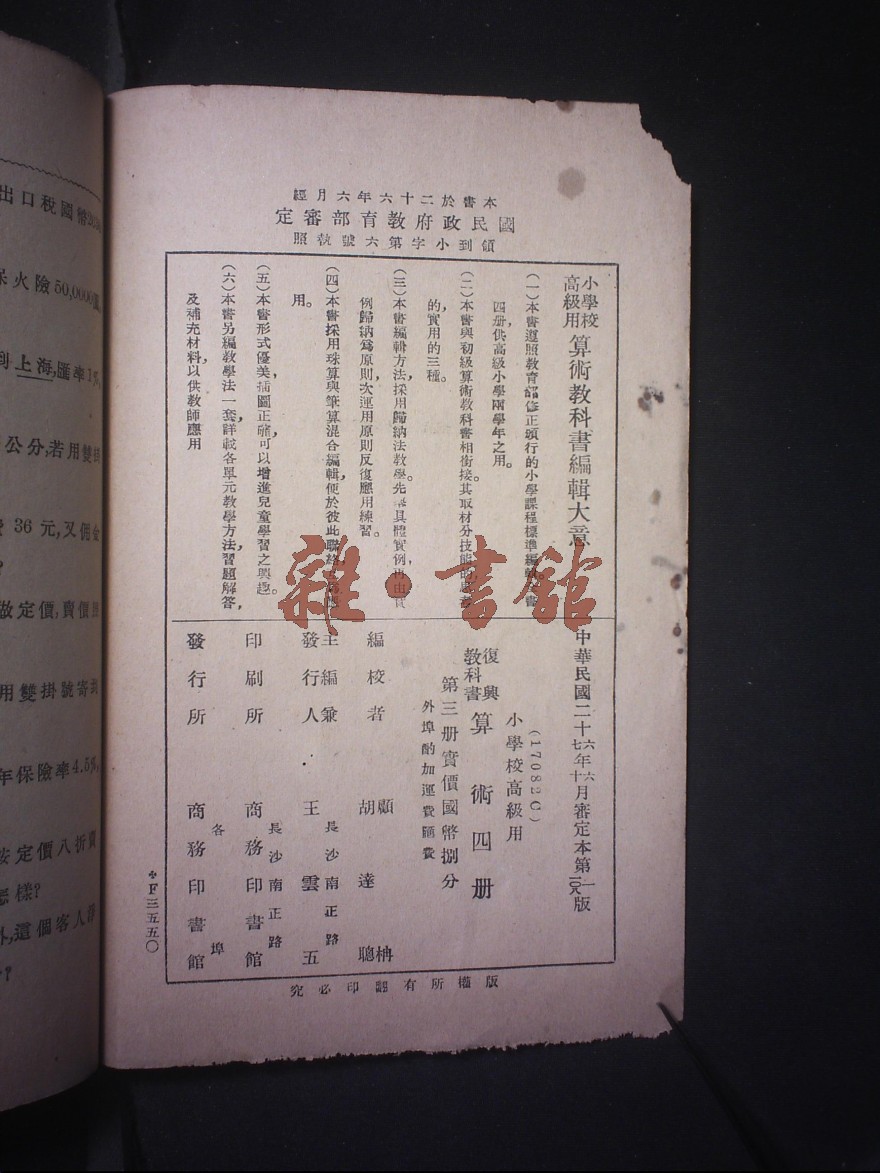 本書於二十六年六月經
國民政府教育部審定
領到小字第六號執照
小學校
高級用
算術教科書編輯大意
(一)本書遵照教育部修正頒行的小學課程標準編輯。書
四册,供高級小學兩學年之用。
(二)本書與初級算術教科書相銜接。其取材分技能的思考
的,實用的三種。
(三)本書編輯方法,採用歸納法教學。先舉具體實例,再由實
例歸納爲原則,次運用原則反復應用練習。
(四)本書採用珠算與筆算混合編輯,便於彼此聯絡
用。
(五)本書形式優美,插圖正確,可以增進兒童學習之興趣。
(六)本書另編教學法一套,詳載各單元教學方法,習題解答,
及補充材料,以供教師應用
中華民國二十六年六月審定本第一版
七年十
一〇八
(17082C)
小學校高級用
復興
教科書
算術四册
第三册實價國幣捌分
外埠酌加運費匯費
編校者
顧枏
胡達聰
主編兼
發行人
長沙南正路
王雲五
印刷所
長沙南正路
商務印書館
發行所
各埠
商務印書館
版權所有翻印必究
F三五五〇
雜·書館
出口税國幣
保火險50,000
到上海,匯率1%,
公分,若用雙掛
36元,又佣金
?
做定價,賣價照
用雙掛號寄
年保險率4.5%,
按定價八折賣
怎樣?
外,這個客人淨
?